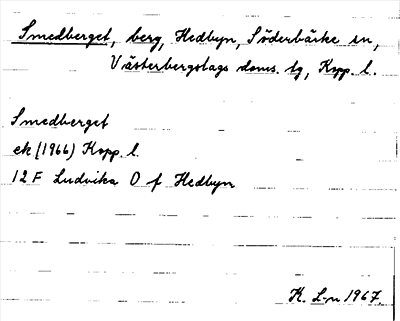 Smedberget, berg, Hedbyn, Söderbärke sn,
Västerbergslags doms. tg, Kopp. l.
Smedberget
ek (1966) Kopp. l.
12 F Ludvika O f Hedbyn
K. L-n 1967.